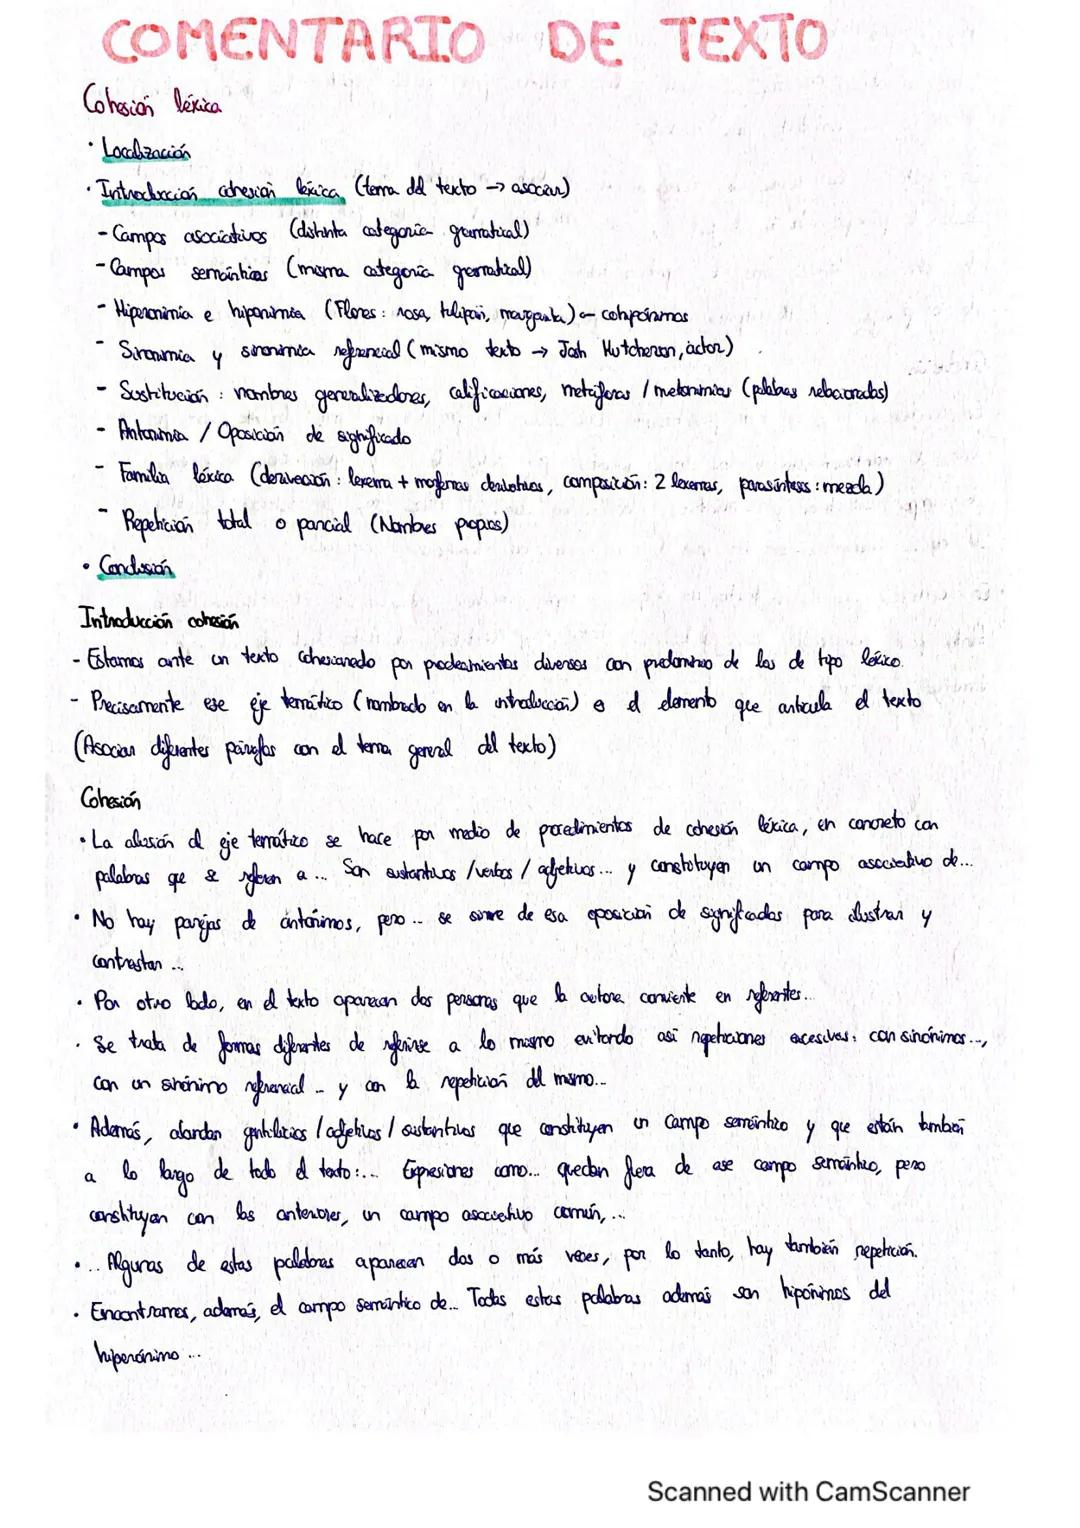 COMENTARIO DE TEXTO
Cohesión léxica
· Localización
· Introducción cohesión léxica (tema del texto → asociar)
- Campos asociativos (distinta categoría gramatical)
- Campos semánticos (misma categoría gramatical)
- Hiperonimia e hiponimia (Flores: rosa, tulipán, margarita) - cohipónimos
- Sinonimia y sinonimia referencial (mismo texto → Josh Hutcherson, actor)
- Sustitución: nombres generalizadores, calificaciones, metáforas / metonimias (palabras relacionadas)
- Antonimia / Oposición de significado
- Familia léxica (derivación: lexema + morfemas derivativos, composición: 2 lexemas, parasíntesis: mezcla)
- Repetición total o parcial (Nombres propios)
· Conclusión
Introducción cohesión
- Estamos ante un texto cohesionado por procedimientos diversos con predominio de los de tipo léxico.
- Precisamente ese eje temático (nombrado en la introducción) es el elemento que articula el texto
(Asociar diferentes párrafos con el tema general del texto)
Cohesión
· La alusión al eje temático se hace por medio de procedimientos de cohesión léxica, en concreto con
palabras que se refieren a ... Son sustantivos /verbos / adjetivos... y constituyen un campo asociativo de...
· No hay parejas de antónimos, pero... se sirve de esa oposición de significados para ilustrar y
contrastar ...
· Por otro lado, en el texto aparecen dos personas que la autora convierte en referentes...
· Se trata de formas diferentes de referirse a lo mismo evitando así repeticiones excesivas: con sinónimos...,
con un sinónimo referencial ... y con la repetición del mismo...
· Además, abundan gentilicios / adjetivos / sustantivos que constituyen un campo semántico y que están también
a lo largo de todo el texto:... Expresiones como... quedan fuera de ese campo semántico, pero
constituyen con los anteriores, un campo asociativo común, ...
· ... Algunas de estas palabras aparecen dos o más veces, por lo tanto, hay también repetición.
· Encontramos, además, el campo semántico de... Todas estas palabras además son hipónimos del
hiperónimo ...
Scanned with CamScanner